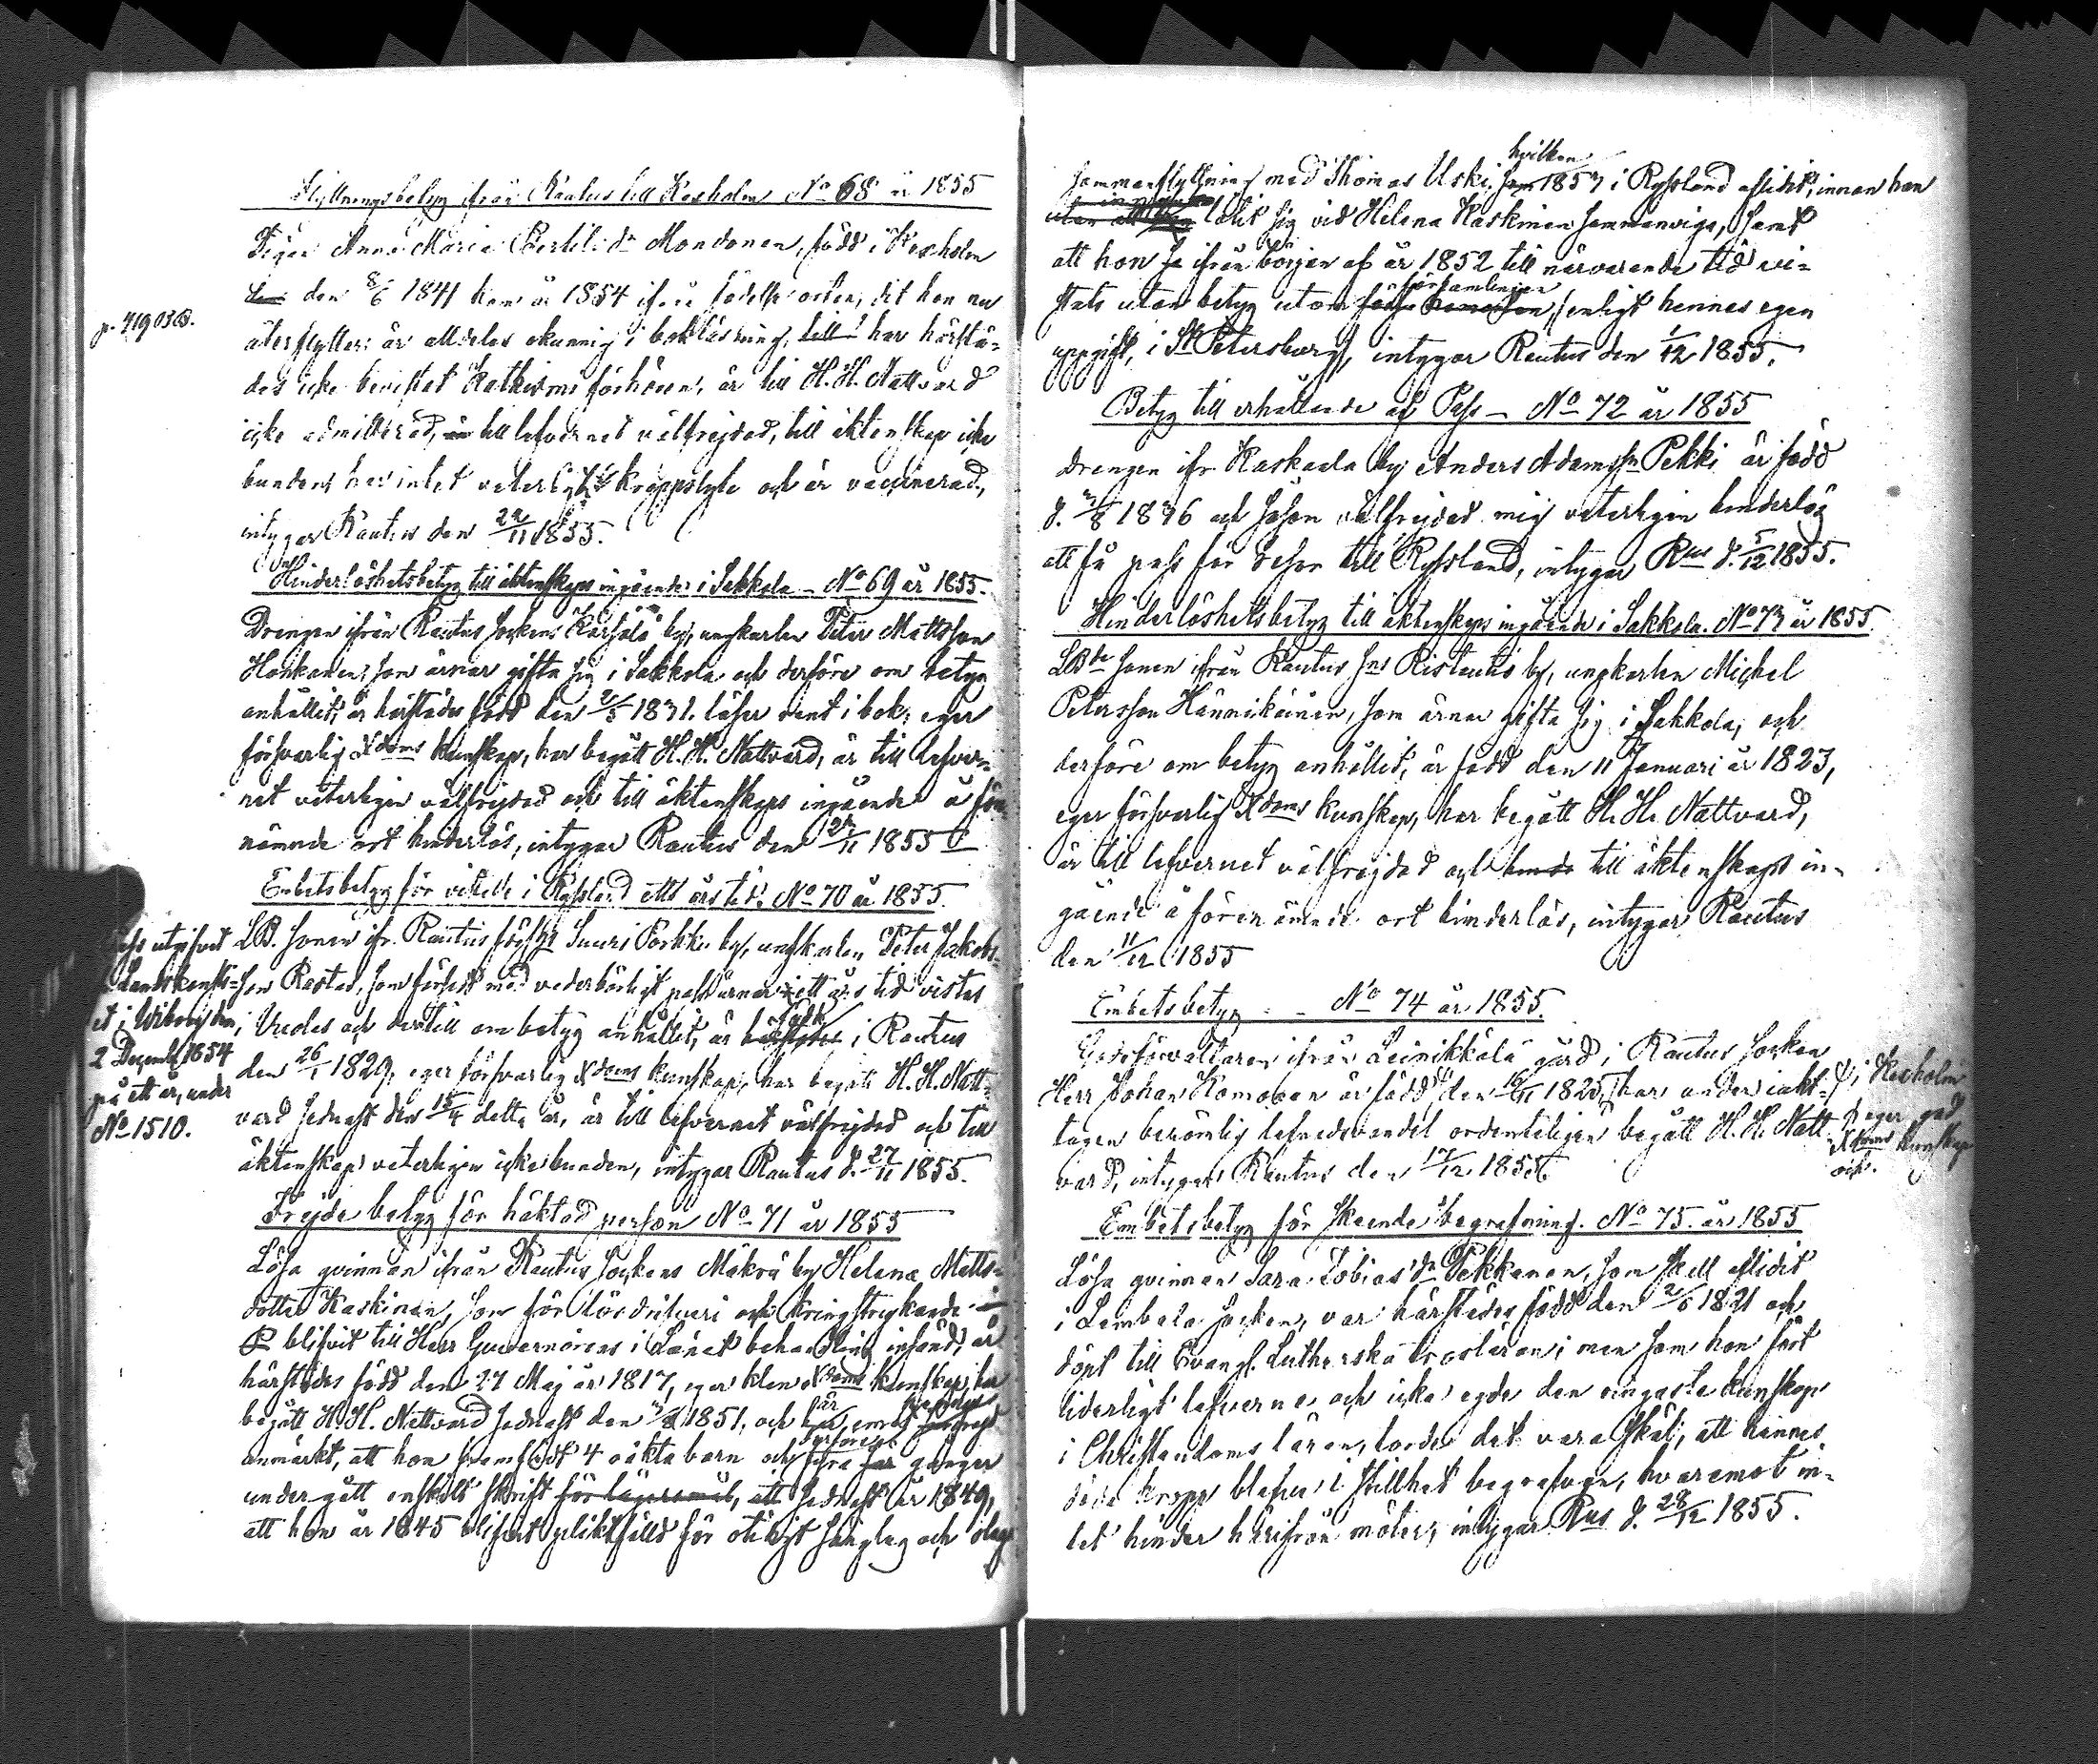 Flyttningsbetyg ifrån Rautus till Kexholm No 68 år 1855
Pigan Anna Maria Bertils dr Mondonen, född i Kexholm
den 8/6 1841 kom år 1854 ifrån födelse orten, dit hon nu
p. 719 03
återflyttar; är alldeles okunnig i bokläsning, till har härstä-
des icke bevistat Katkismi förhören, är till H. H. Nattvard
icke admitterad, är till lefvernet välfrejdad, till äktenskap icke
bunden, har intet veterligt kroppslyte och är vaccinerad,
intygar Rautus den 22/11 1855.
Hinderlöshetsbetyg till äktenskaps ingående i Sakkola - No 69 år 1855.
Drengen ifrån Rautus Sockens Kärsälä by, ungkarlen Peter Mattsson
Hoskanen, som ärnar gifta sig i Sakkola och derföre om betyg
anhållit, är härstädes född den 2/5 1831. läser rent i bok, eger
försvarlig Xdoms kunskap, har begått H. H. Nattvard, är till lefver-
net veterligen välfrejdad och till äktenskaps ingående å för
nämnde ort hinderlös, intygar Rautus den 23/11 1855
Embetsbetyg för vistelse i Ryssland ett års tid. No 70 år 1855.
Pass utgifvit
Landskansli-
et i Wiborg den
2 Decemb. 1854
på ett år, under
No 1510.
LB. sonen ifr. Rautus Suuri Porkku by, ungkarlen Peter Jakobs-
son Rastas, som försedt med vederbörligt pass ärnar ett års tid vistas
i Vuoles och dertill om betyg anhållit, är född härstädes i Rautus
den 26/1 1829, eger försvarlig Xdoms kunskap, har begått H. H. Natt-
vard sednast den 15/4 detta år, är till lefvernet välfrejdad och till
äktenskap veterligen icke bunden, intygar Rautus d. 27/11 1855.
Frejde betyg för häktad person No 71 år 1855
Lösa qvinnan ifrån Rautus Sockens Mäkrä by Helena Matts-
dotter Kaskinen, som för lösdrifveri och kringstrykande
blifvit till Herr Guvernörens i Länet behandling insänd, är
härstädes född den 27 Maj år 1817, eger klen Xdoms kunskap, har
begått H. H. Nattvard sednast den 3/8 1851, och är
anmärkt, att hon framfödt 4 oäkta barn och derföre fyra gånger
undergått enskildt skrift för lägersmål, att sednast år 1849,
att hon år 1845 blifvit pliktfälld för otidigt sänglag och olag
sammanflyttning med Thomas Uski, hvilken som 1853 i Ryssland aflidit, innan han
utan att låtit sig vid Helena Kaskinen sammanviga, samt
att hon ifrån början af år 1852 till närvarande tid vi-
stats utan betyg utom församlingen, enligt hennes egen
uppgift, i St Petersburg, intygar Rautus den 1/12 1855.
Betyg till erhållande af Pass - No 72 år 1855
drengen ifr. Kaskaala by Anders Adamssn Pekki är född
d. 3/8 1836 och såsom välfrejdad mig veterligen hinderlös
att få pass för resor till Ryssland, intygar Rus d. 5/12 1855.
Hinderlöshetsbetyg till äktenskaps ingående i Sakkola. No 73 år 1855.
LBde sonen ifrån Rautus Sns Ristautis by, ungkarlen Michel
Petersson Hännikäinen, som ärnar gifta sig i Sakkola, och
derföre om betyg anhållit, är född den 11 Januari år 1823,
eger försvarlig Xdoms kunskap, har begått H. H. Nattvard,
är till lefvernet välfrejdad och till äktenskaps in-
gående å förenämnde ort hinderlös, intygar Rautus
den 11/12 1855
Embetsbetyg - No 74 år 1855.
Godsförvaltaren ifrån Leinikkälä gård i Rautus Socken
Herr Johan Komonen är född den 16/11 1825, har under iakt-
tagen berömlig lefnedsvandel ordenteligen begått H. H. Natt
vard, intygar Rautus den 17/12 1855.
i Kexholm
eger god
Xdoms kunskap
och.
Embetsbetyg för skeende begrafning. No 75 år 1855
Lösa qvinnan Sara Tobias dr Pekkanen, som skall aflidit
i Lembala Socken, var härstädes född den 2/6 1821 och
döpt till Evangl. Lutherska trosläran; men som hon fört
liderligt lefverne och icke egde den ringaste kunskap
i Christendoms läran, torde det vara skäl, att hennes
döda kropp blefve i stillhet begrafven, hvaremot in-
tet hinder härifrån möter, intygar Rus d. 28/12 1855.